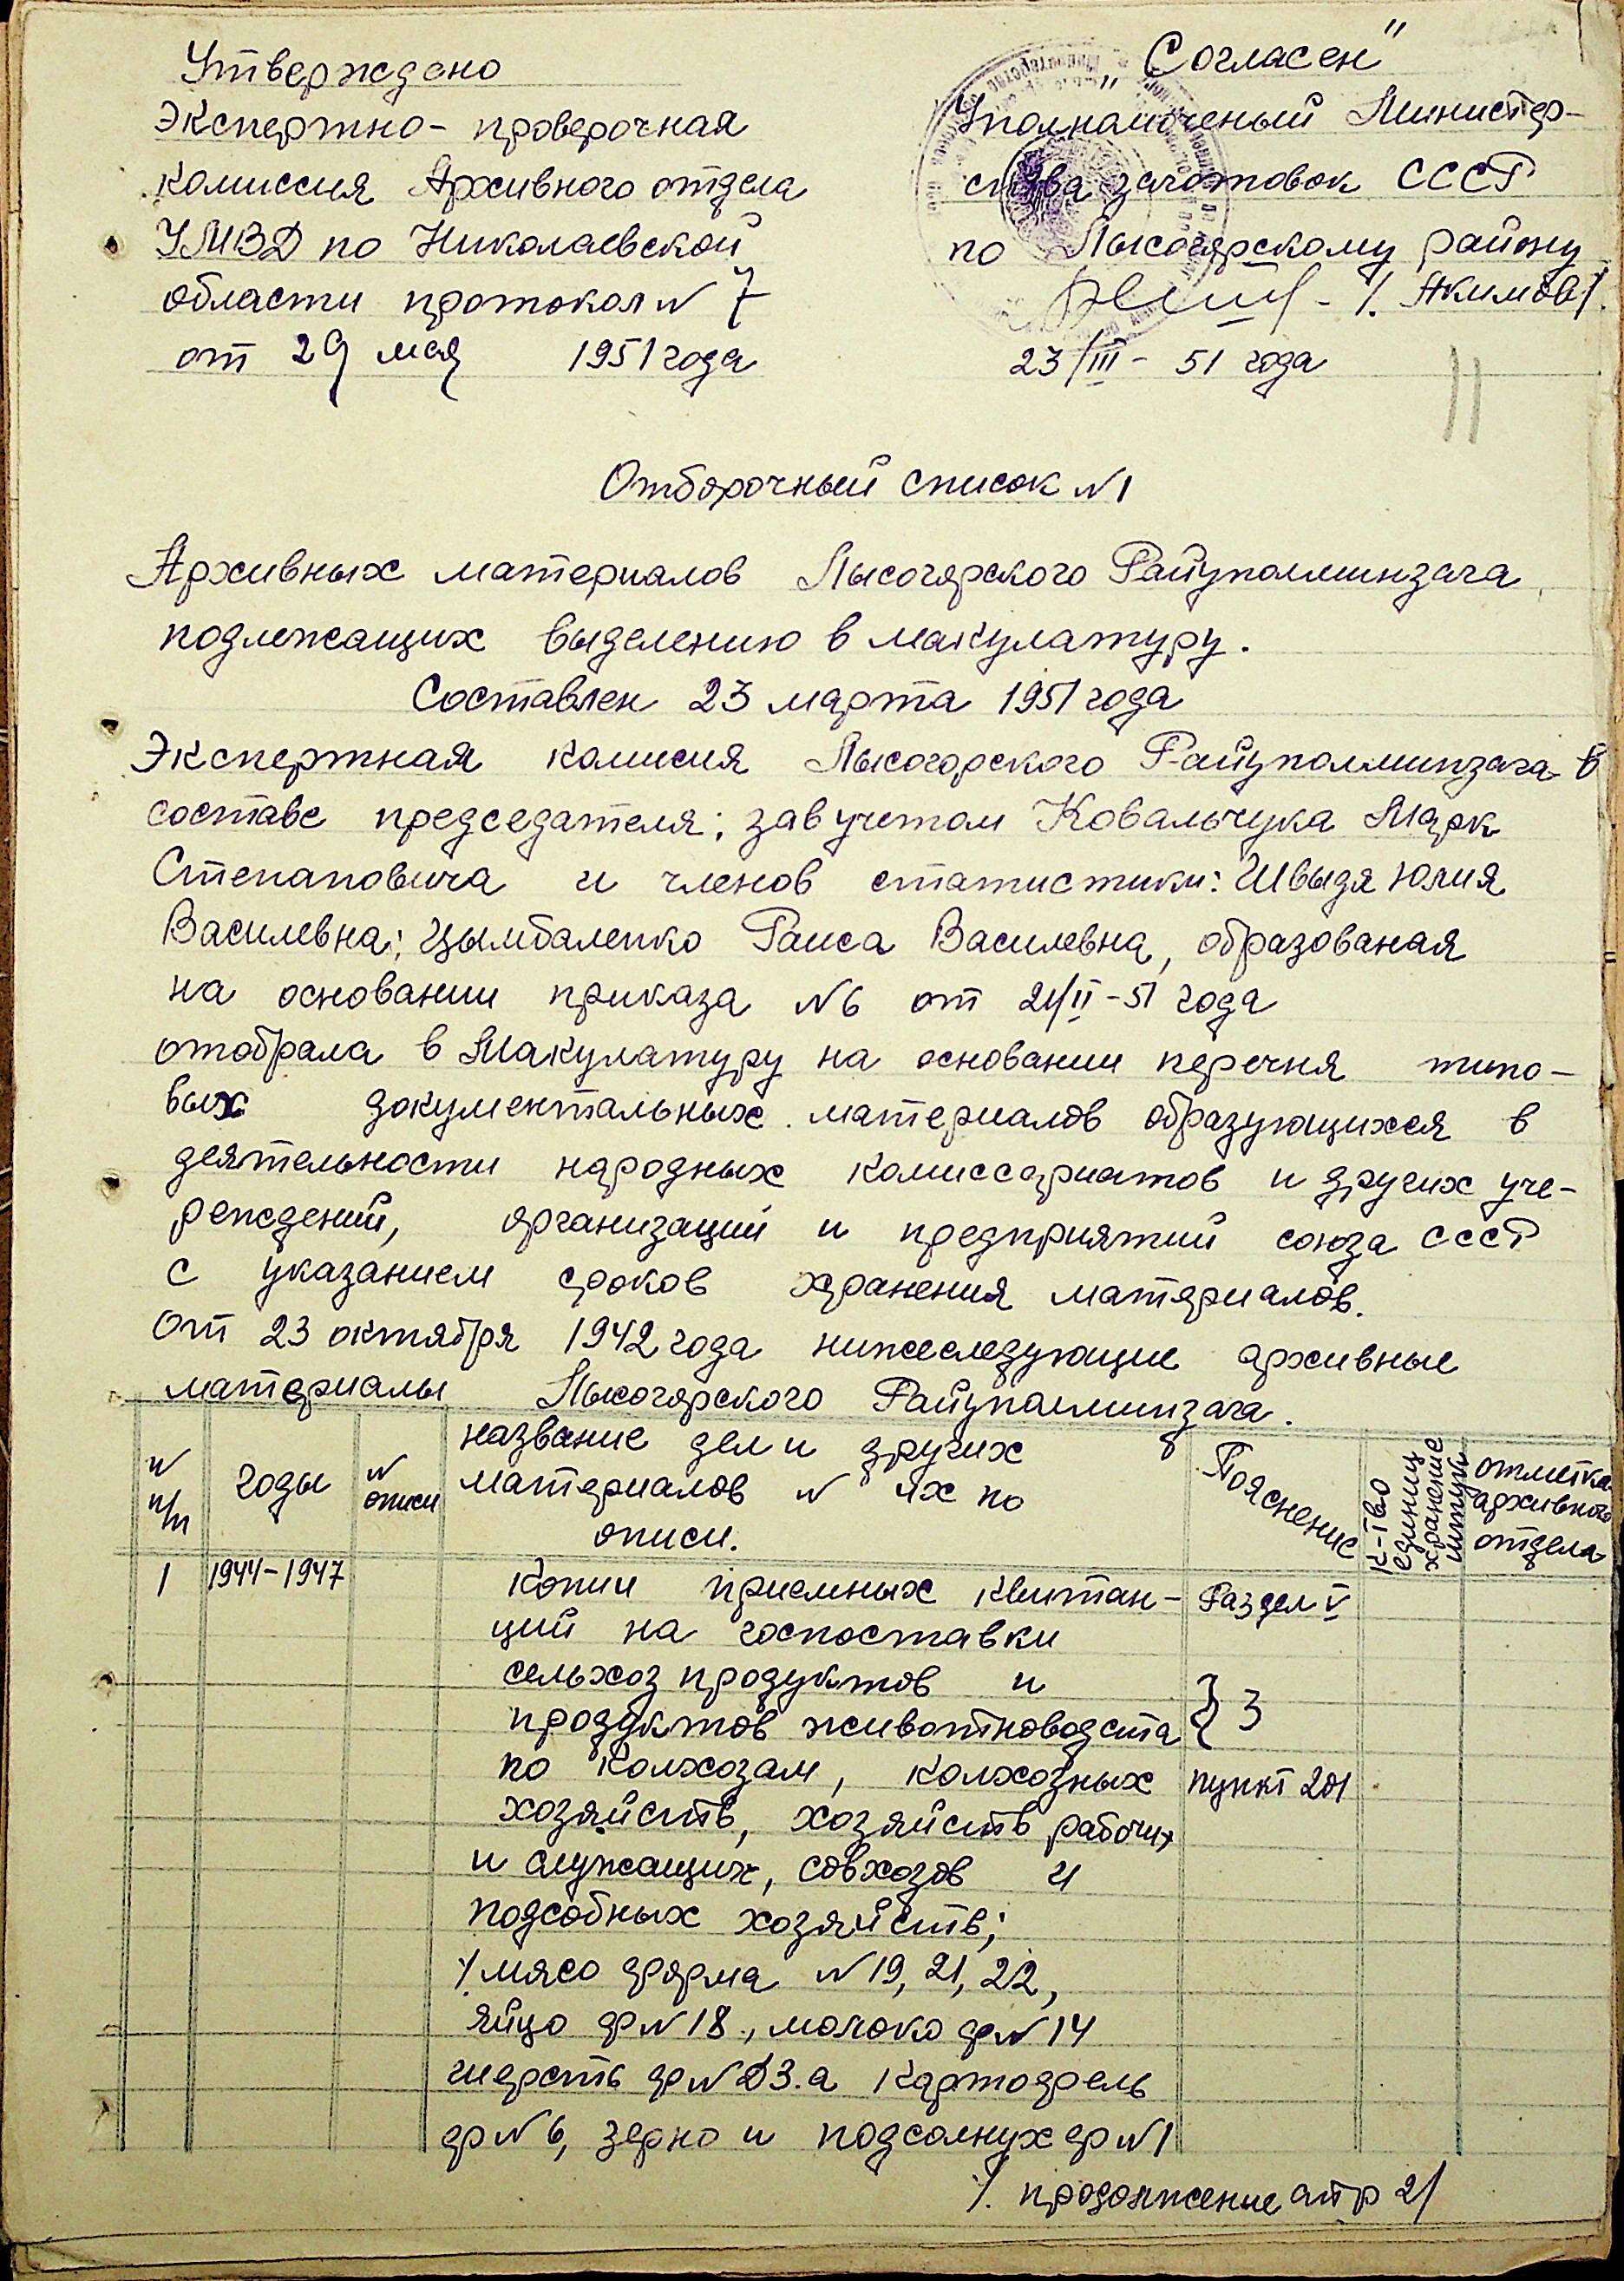 Утверждено
Экспертно-проверочная
комиссия Архивного отдела
УМВД по Николаевской
области протокол N 7
от 29 мая 1951 года
„Согласен"
Уполномоченый Министер-
ства заготовок СССР
по Лысогорскому району
/. Акимов/.
23/III - 51 года
11
Отборочный список N1
Архивных материалов Лысогорского Райуполминзага,
подлежащих выделению в макулатуру.
Составлен 23 марта 1951 года
Экспертная комисия Лысогорского Райуполминзага в
составе председателя: зав учетом Ковальчука Марк
Степановича и членов статистики: Швыдя Юлия
Василевна; Цымбаленко Раиса Василевна, образованая
на основании приказа N6 от 21/II-51 года
отобрала в Макулатуру на основании перечня типо-
вых документальных материалов образующихся в
деятельности народных комиссариатов и других уче-
реждений, организаций и предприятий союза СССР
с указанием сроков хранения материалов.
от 23 октября 1942 года нижеследующие архивные
материалы Лысогорского Райуполминзага.
N п/п
годы
N описи
название дел и других
материалов N их по
описи.
Пояснение
К-тво единиц хранение штук
отметка архивного отдела
1 1944-1947 Копии приемных квитан- Раздел V
ций на госпоставки
сельхоз продуктов и
продуктов животноводста } 3
по колхозам, колхозных пункт 201
хозяйств, хозяйств рабочих
и служащих, совхозов и
подсобных хозяйств;
/мясо форма N19, 21, 22,
яйцо ф N 18, молоко ф N 14
шерсть ф N 23.а картофель
ф N 6, зерно и подсолнух ф N 1
/. продолжение стр 2/